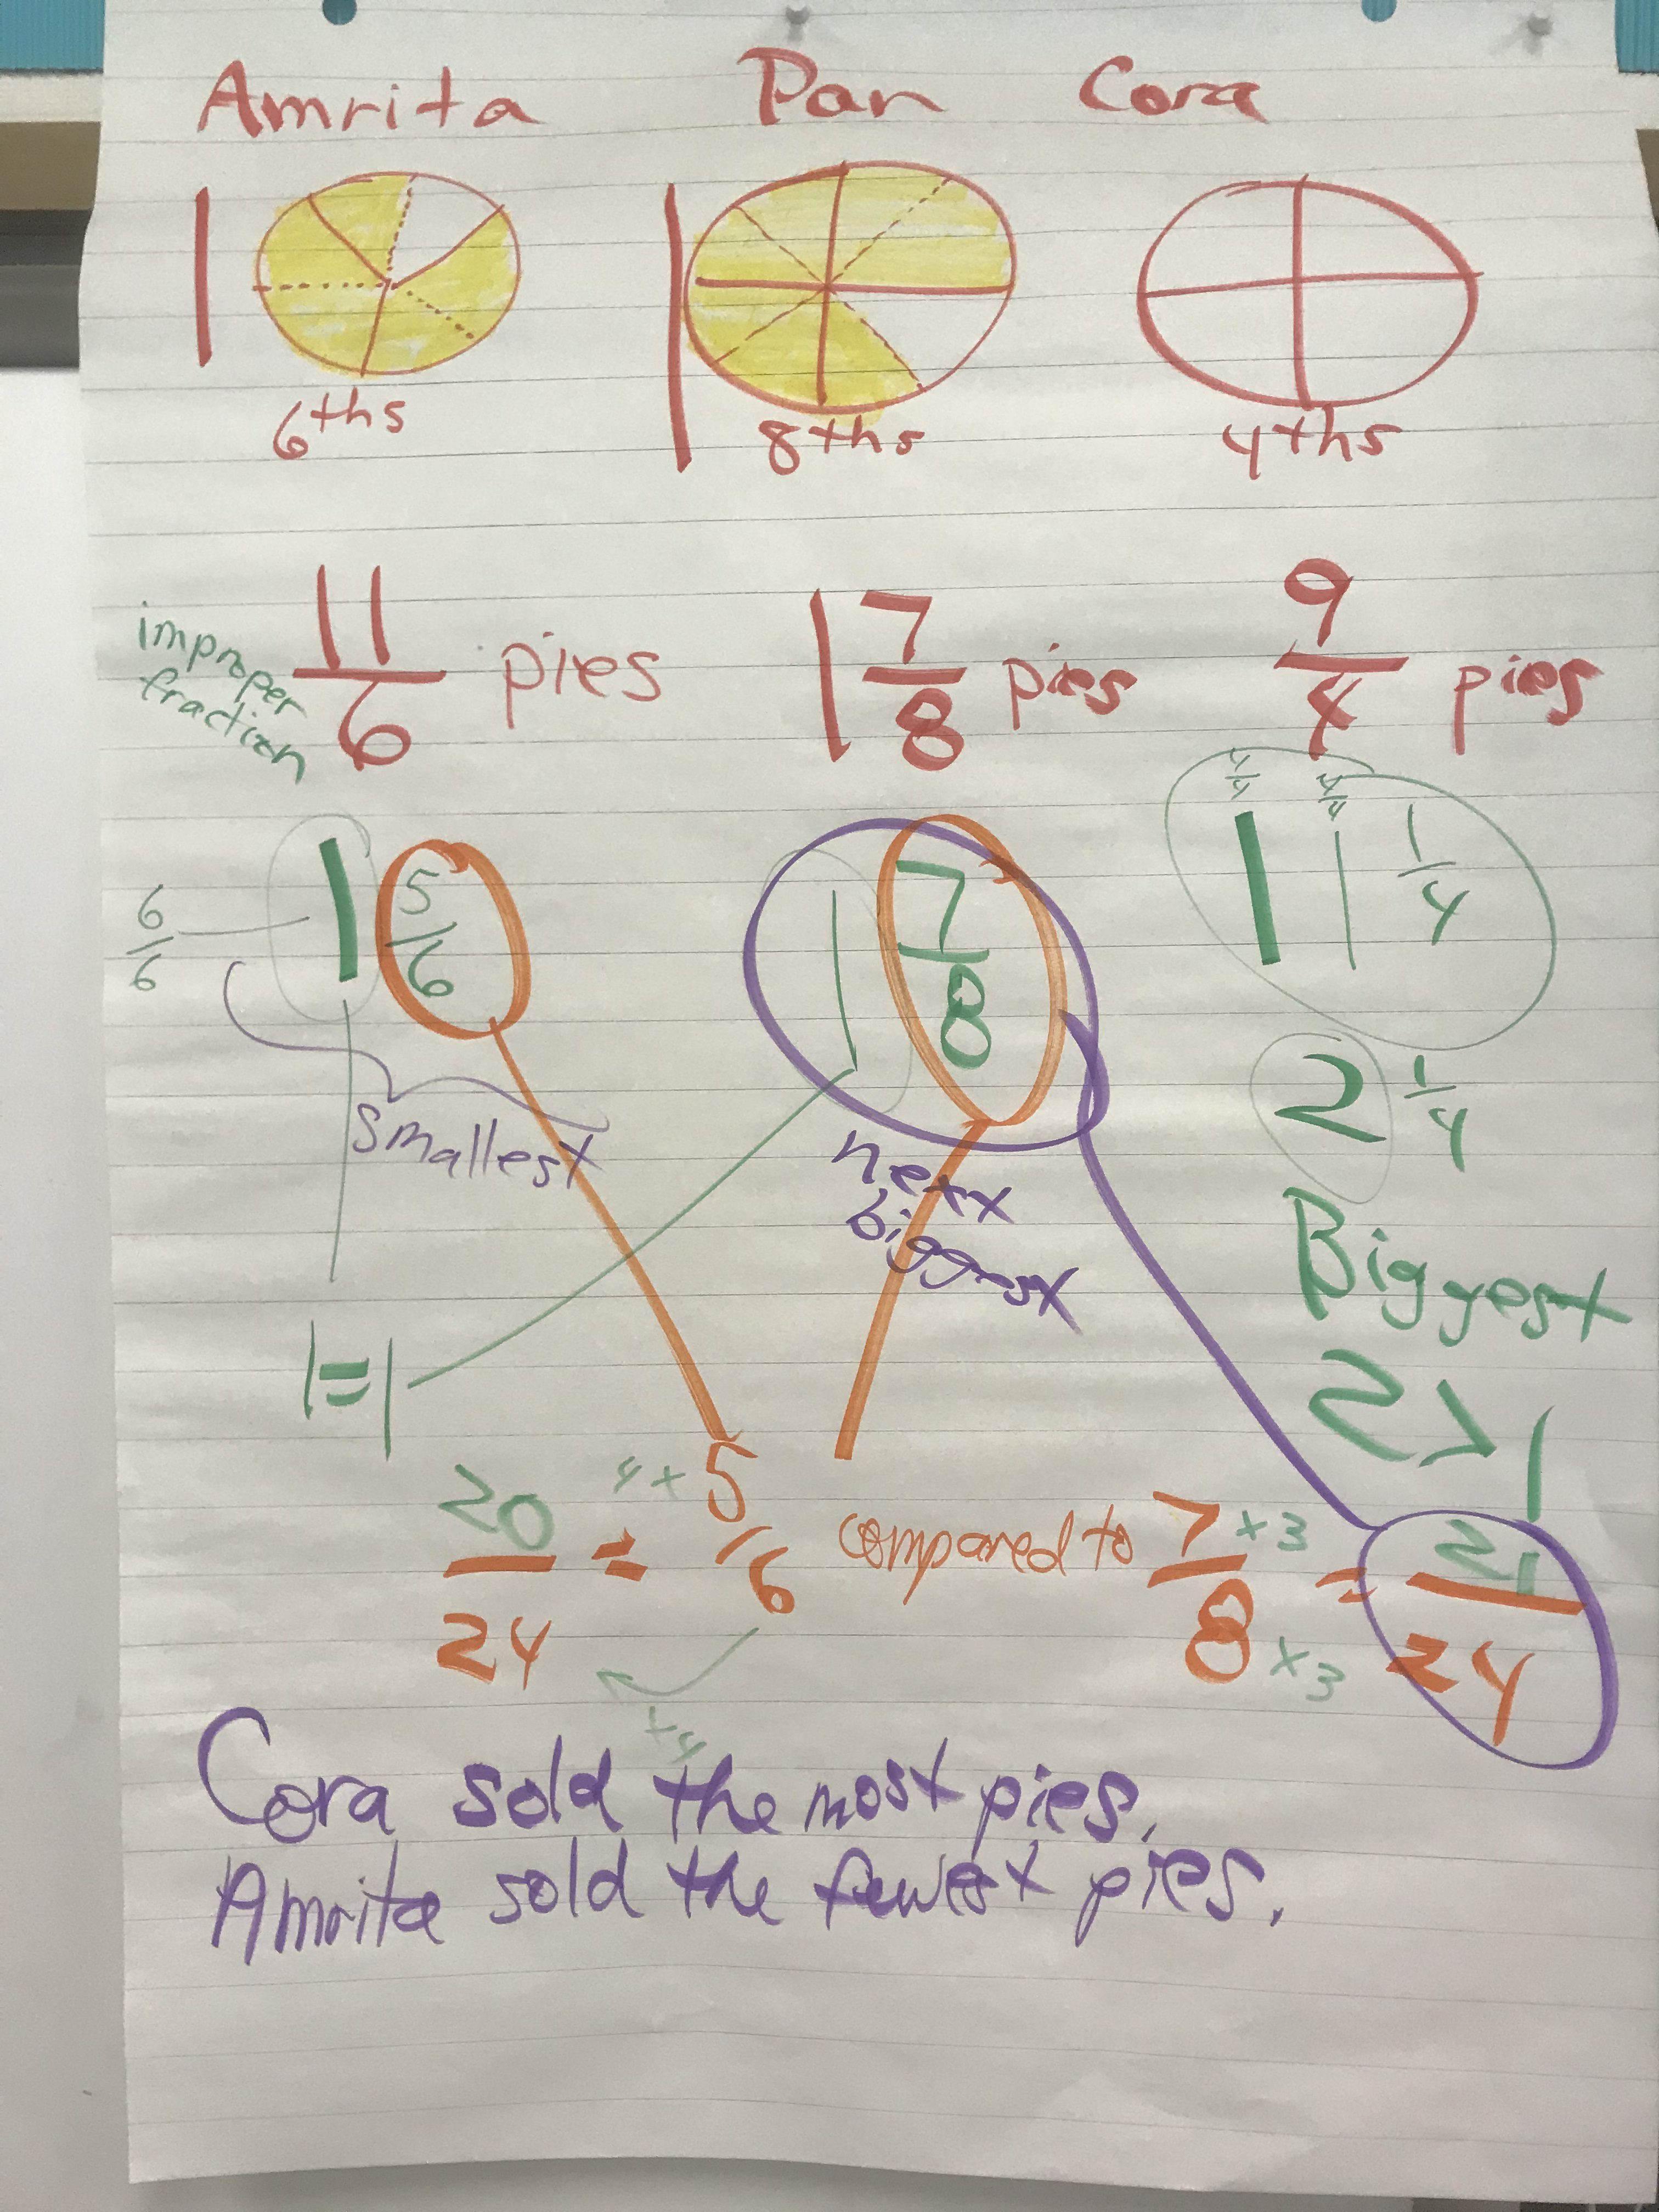 Amrita Pan Cora
1 1
6ths 8ths 4ths
improper fraction
11/6 pies 1 7/8 pies 9/4 pies
4/4 4/4
6/6 1 5/6 1 7/8 1 1 1/4
2 1/4
smallest
next
biggest
Biggest
1=1
2>1
20/24 = 4x 5/6 compared to 7/8 x3 x3 = 21/24
x4
Cora sold the most pies.
Amrita sold the fewest pies.